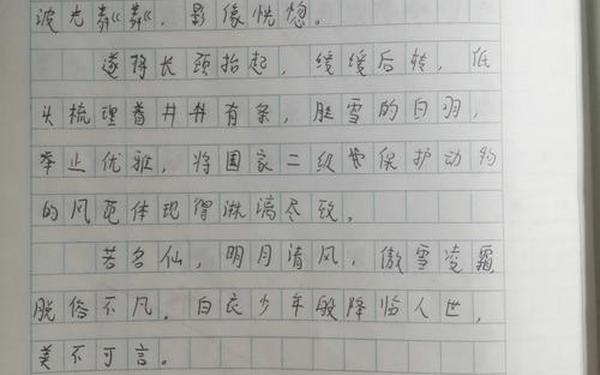 波光粼粼，影像恍惚。
遂将长颈抬起，缓缓后转，低
头梳理着井井有条，胜雪的白羽，
举止优雅，将国家二级保护动物
的风范体现得淋漓尽致。
若名仙，明月清风，傲雪凌霜
脱俗不凡。白衣少年般降临人世，
美不可言。